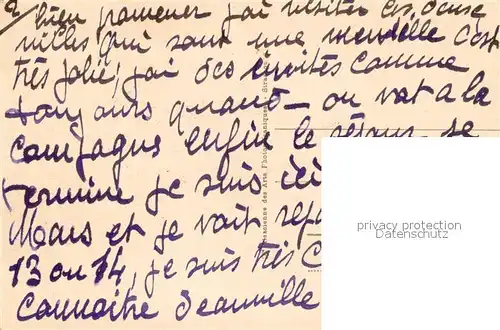 bien promener j'ai visiter les deux
villes qui sont une merveille c'est
très jolie, j'ai des invités comme
toujours quand on vat a la
campagne enfin le séjour se
termine je suis ici
Mars et je vait rep
13 ou 14, je suis très c
connaitre Deauville
privacy protection
Datenschutz